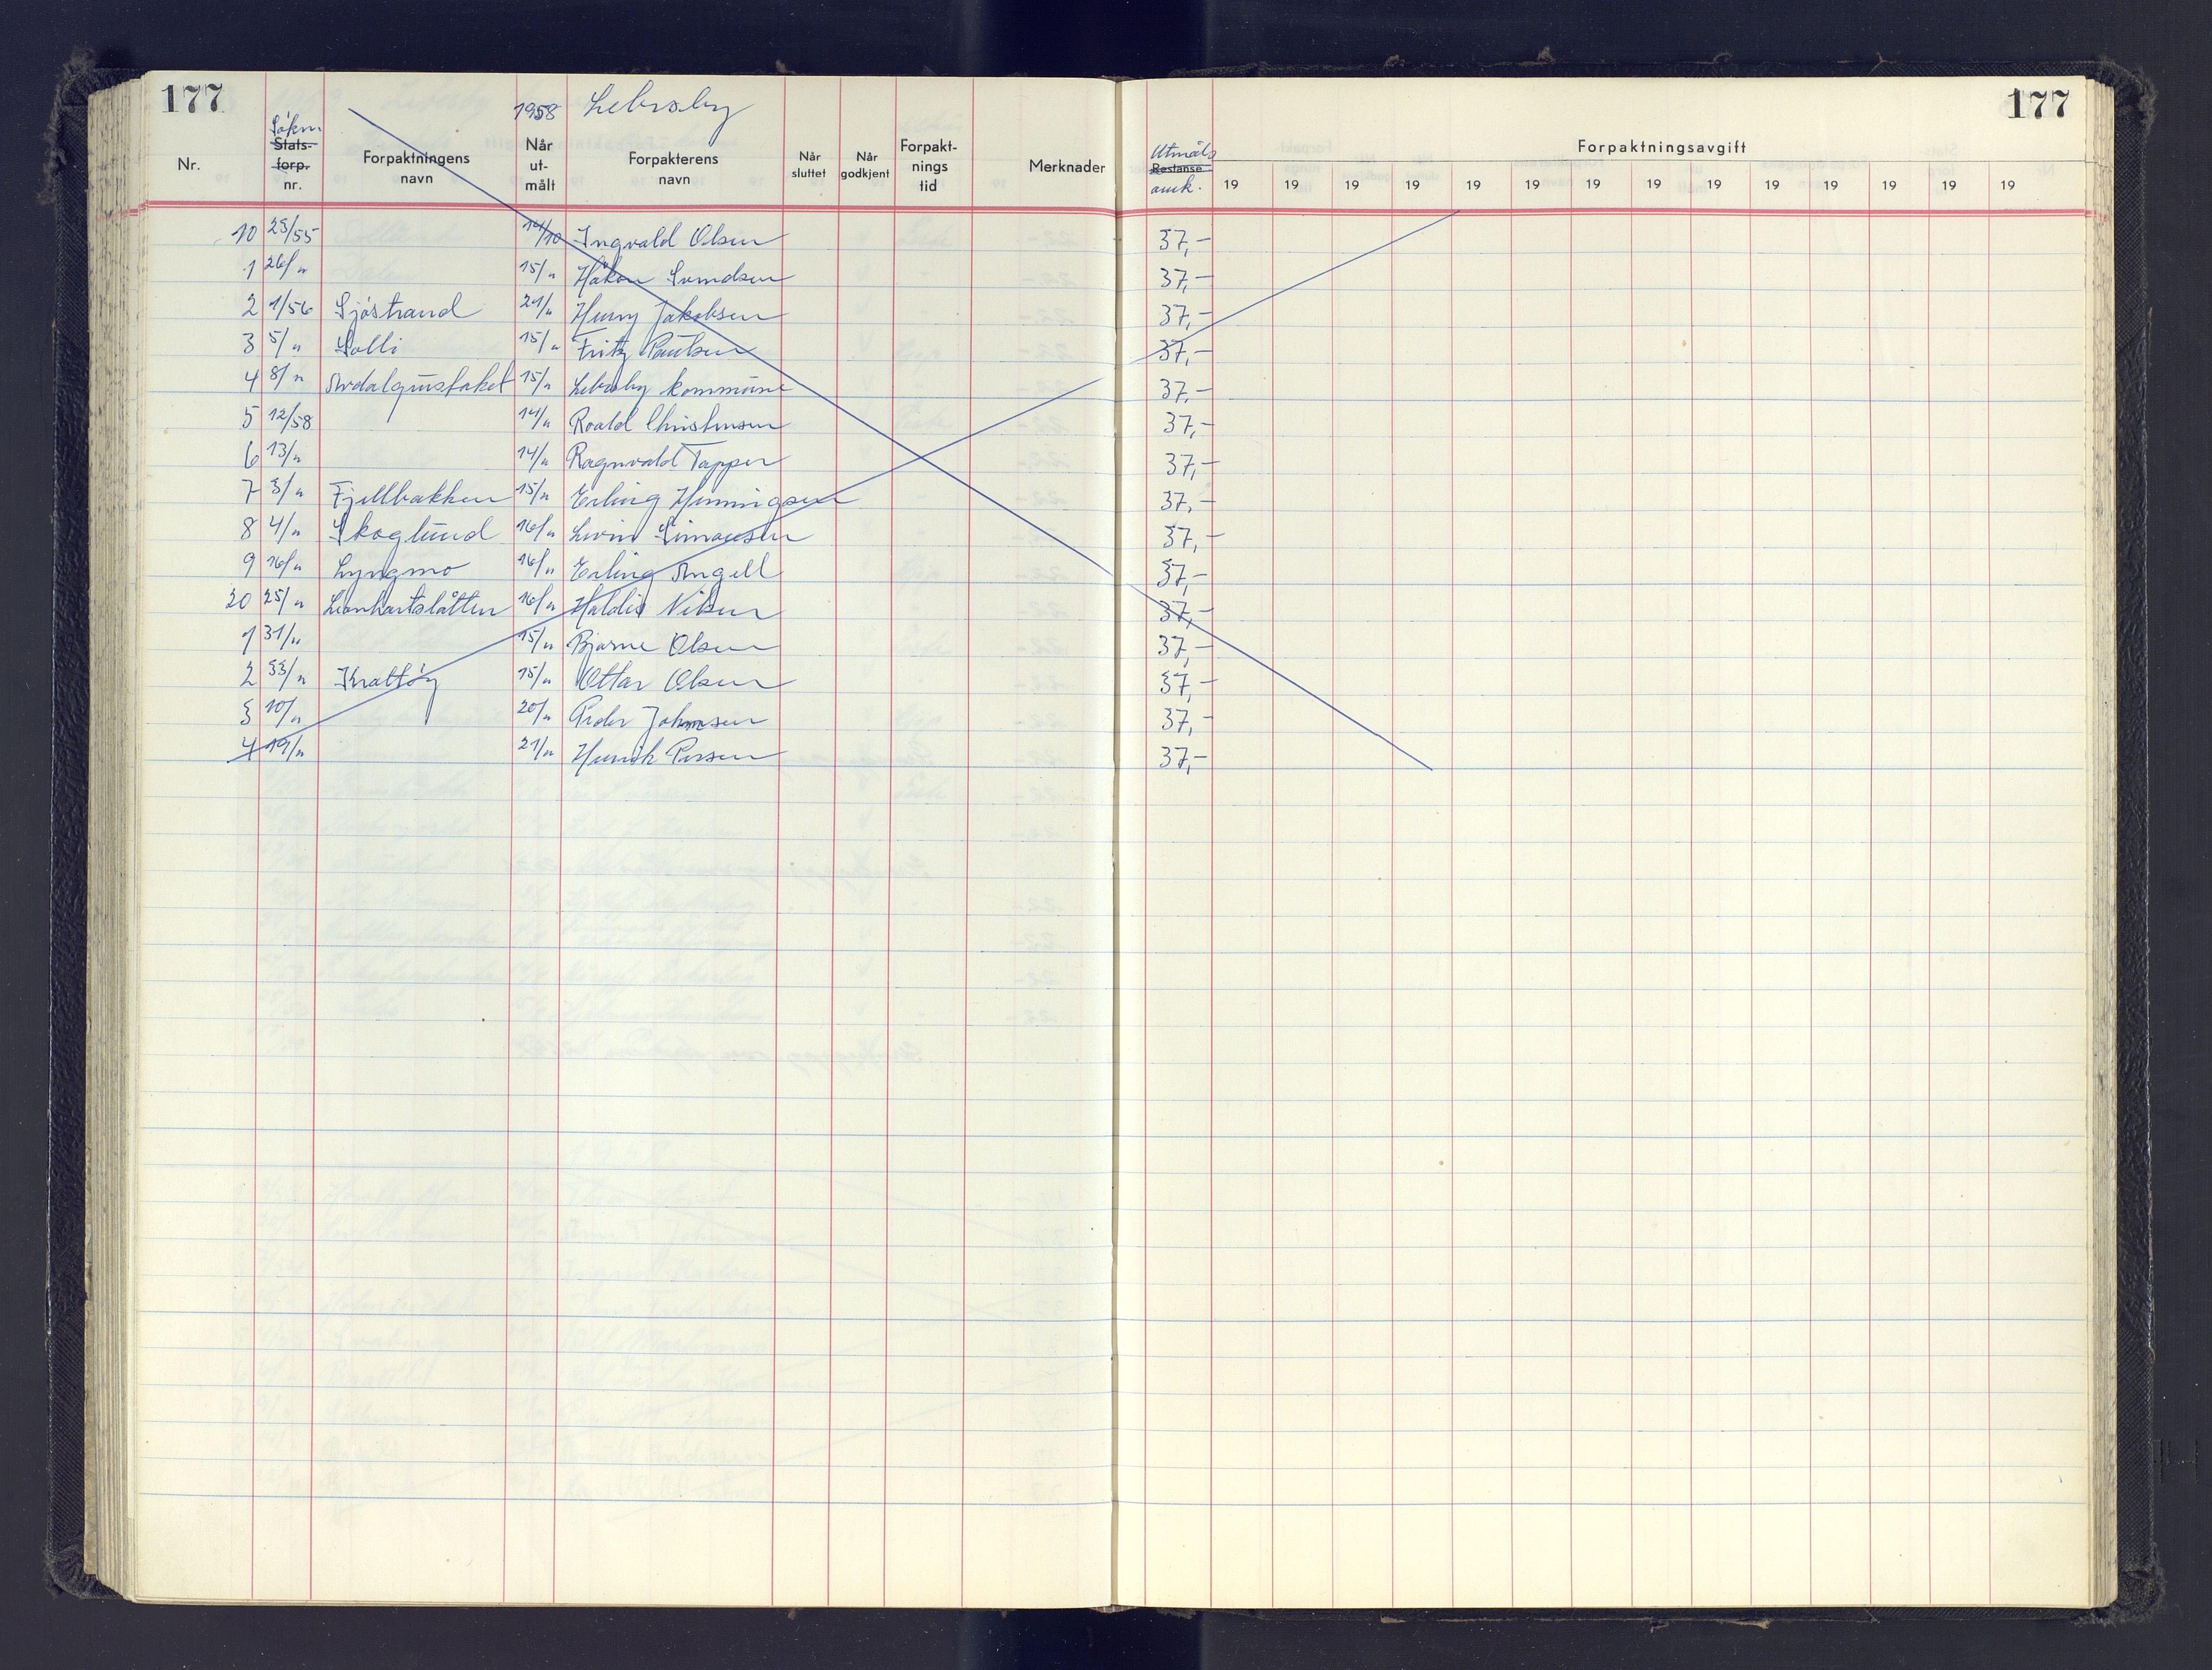 177 177
1958 Lebesby
Nr.
Søkn
Stats-
forp.
nr.
Forpaktningens
navn
Når
ut-
målt
Forpakterens
navn
Når
sluttet
Når
godkjent
Forpakt-
nings
tid
Merknader
Utmåls
Restanse
Forpaktningsavgift
19 19 19 19 19 19 19 19 19 19 19 19 19 19
10 25/55 14/10 Ingvald Olsen 37,-
1 26/" 15/" Håkon Svendsen 37,-
2 1/56 Sjøstrand 21/" Henry Jakobsen 37,-
3 5/" Solli 15/" Fritz Paulsen 37,-
4 8/" 15/" Lebesby kommune 37,-
5 12/58 14/" Roald Christensen 37,-
6 13/" 14/" Ragnvald Tapper 37,-
7 3/" Fjellbakken 15/" Erling Henningsen 37,-
8 4/" Skoglund 16/" Simonsen 37,-
9 16/" Lyngmo 16/" Erling Angell 37,-
20 25/" Leonhartslåtten 16/" Haldis Nilsen 37,-
1 31/" 15/" Bjarne Olsen 37,-
2 33/" Krattøy 15/" Ottar Olsen 37,-
3 10/" 20/" Peder Johnsen 37,-
4 19/" 21/" Henrik Persen 37,-